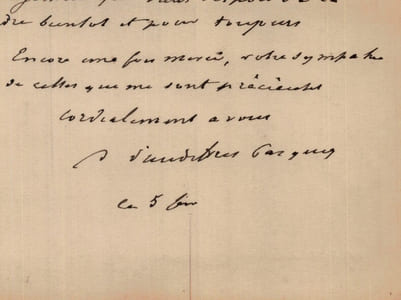 dre bientot et pour toujours
Encore une fois merci, votre sympathie
de celles que me sont précieuses
cordialement a vous
le 5 fev